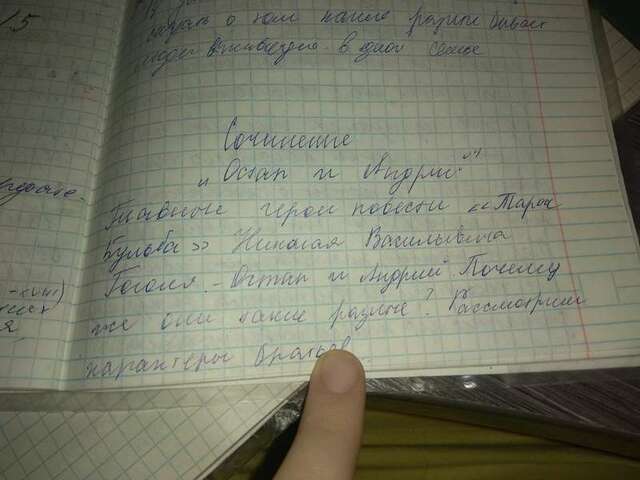 15
о том какие разные бывают
люди в одной семье
Сочинение
„Остап и Андрий"
Главные герои повести «Тарас
Бульба» Николая Васильевича
Гоголя - Остап и Андрий. Почему
же они такие разные? Рассмотрим
характеры братьев.